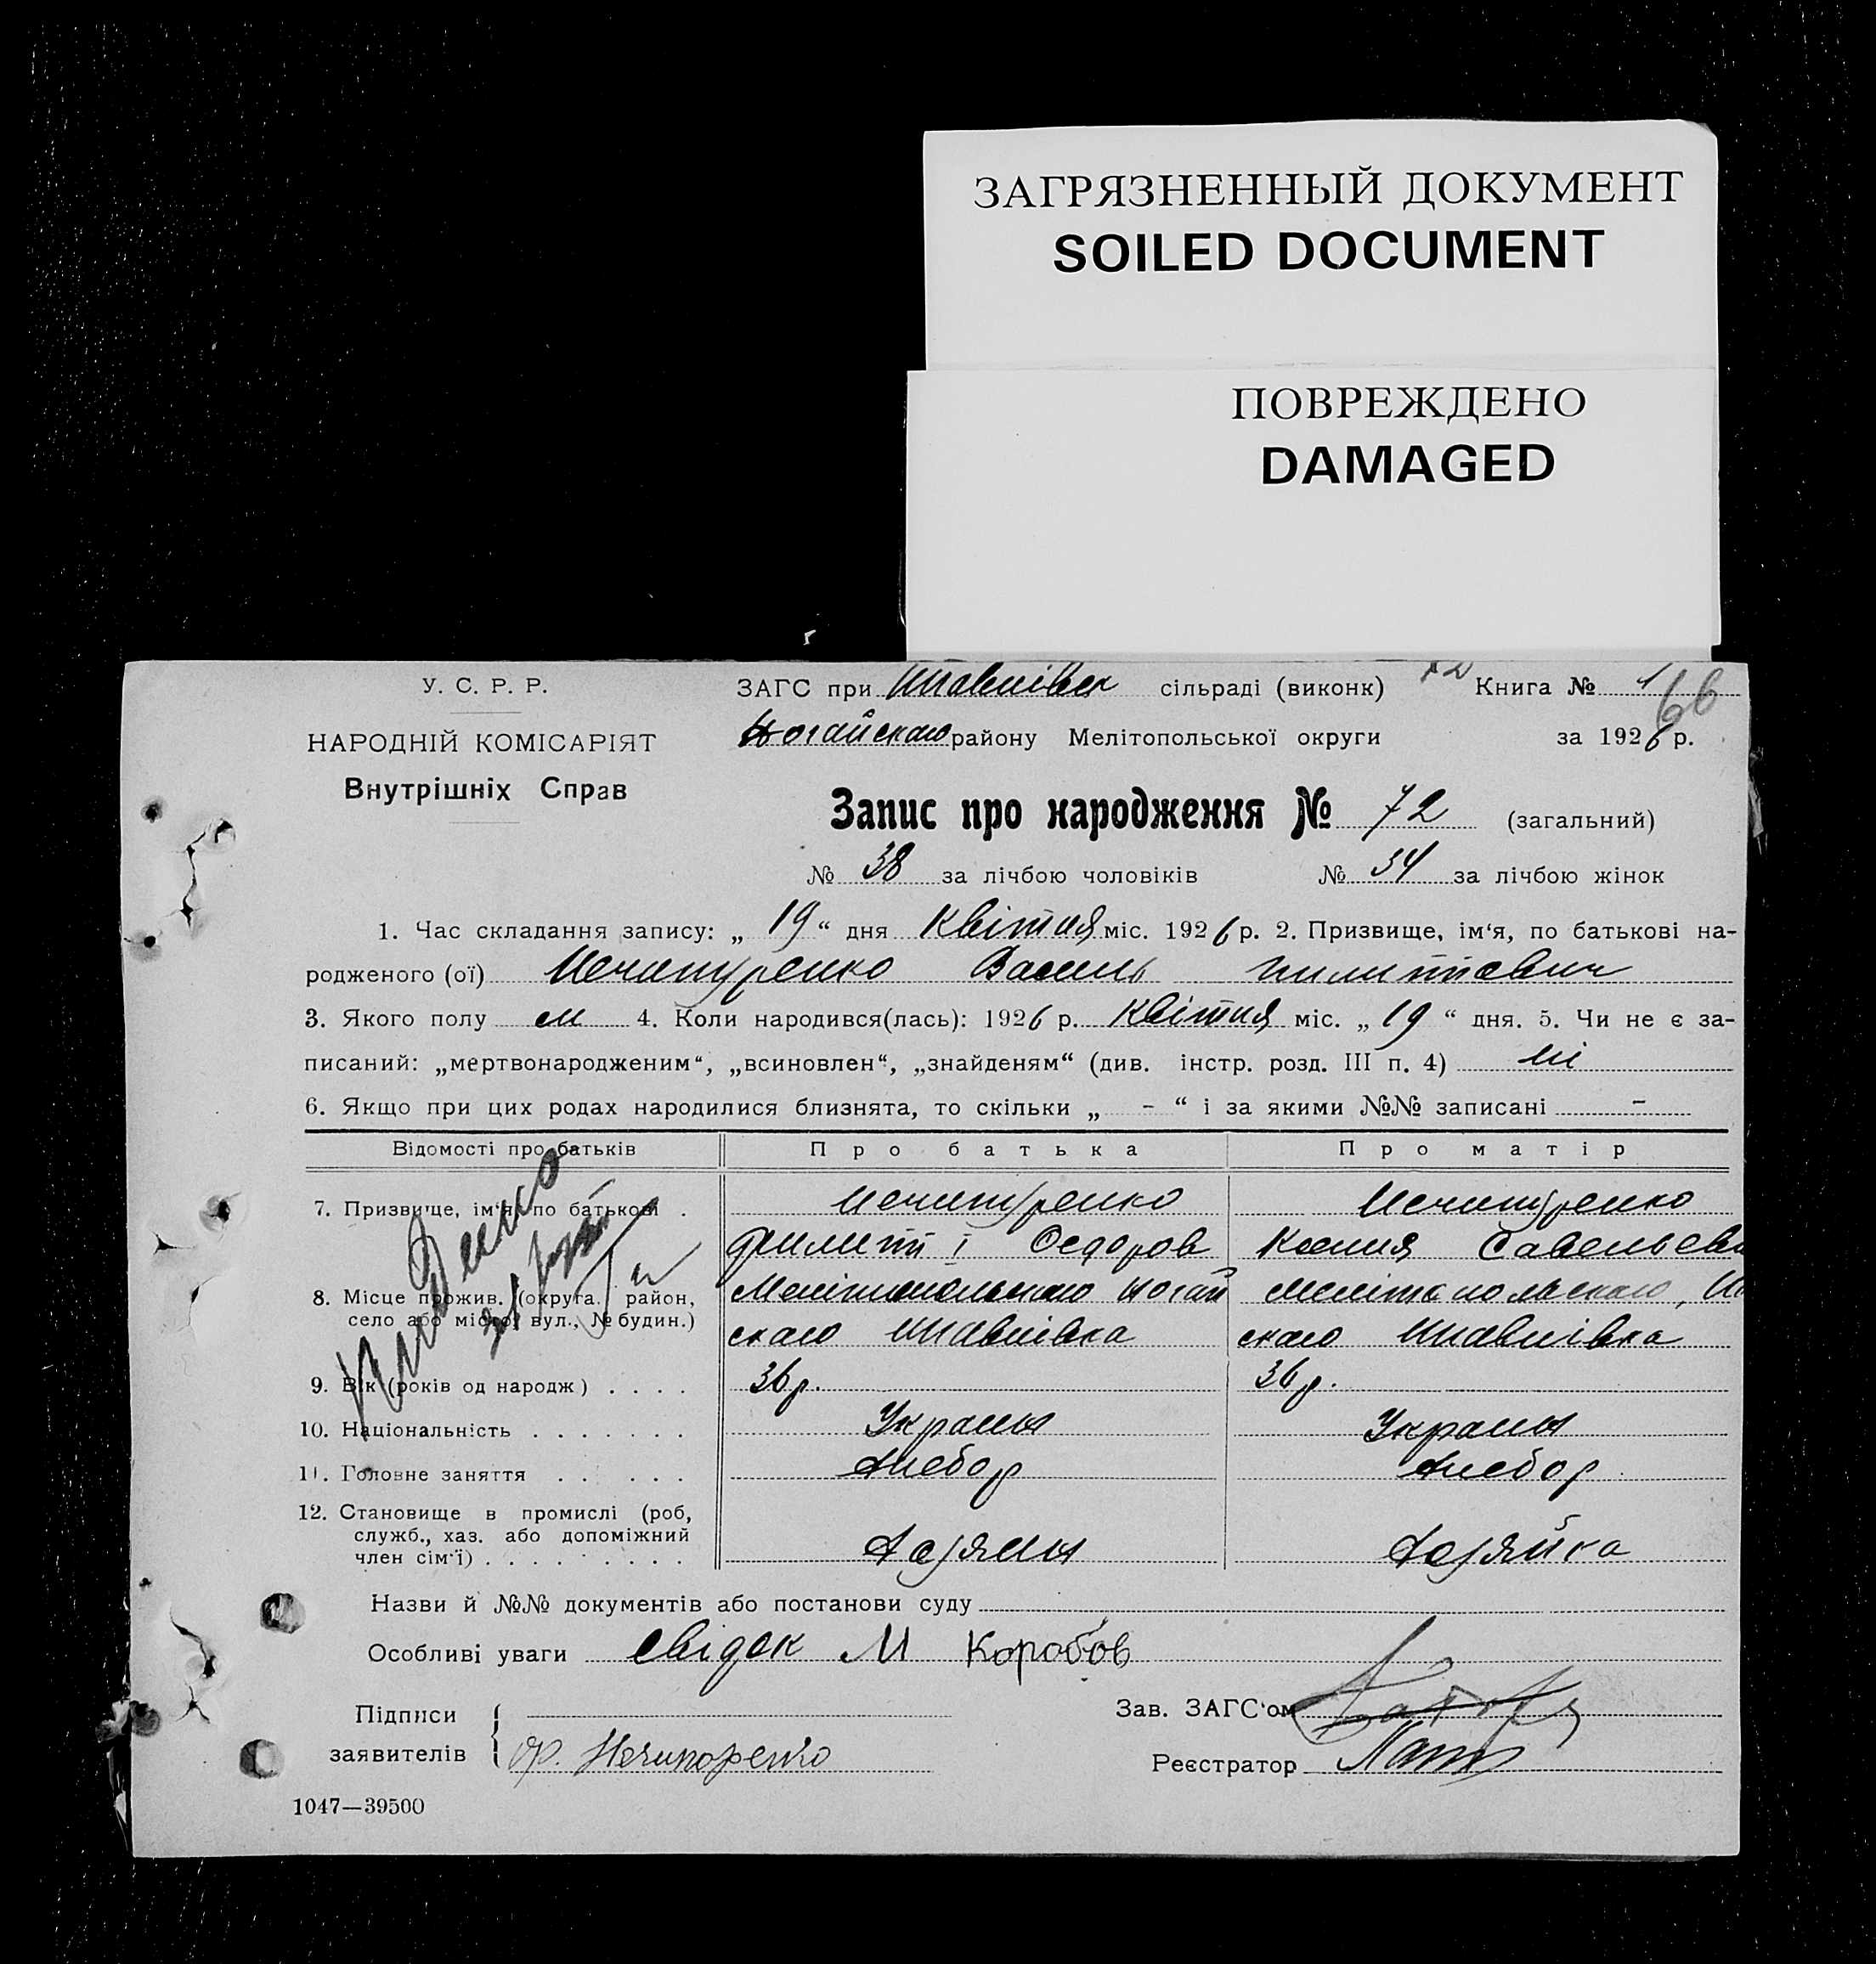 ЗАГРЯЗНЕННЫЙ ДОКУМЕНТ
SOILED DOCUMENT
ПОВРЕЖДЕНО
DAMAGED
У. С. Р. Р.
НАРОДНІЙ КОМІСАРІЯТ
Внутрішніх Справ
ЗАГС при сільраді (виконк) Книга № 1
66
Ногайскаго району Мелітопольської округи за 1926 р.
Запис про народження № 72 (загальний)
№ 38 за лічбою чоловіків № 34 за лічбою жінок
1. Час складання запису: „ 19 “ дня Квітня міс. 1926 р. 2. Призвище, ім‘я, по батькові на-
родженого (ої) Нечипуренко Василь
3. Якого полу м 4. Коли народився(лась): 1926 р. Квітня міс. „ 19 “ дня. 5. Чи не є за-
писаний: „мертвонародженим“, „всиновлен“, „знайденям“ (див. інстр. розд. III п. 4) ні
6. Якщо при цих родах народилися близнята, то скільки „ - “ і за якими №№ записані -
Відомості про батьків Про батька Про матір
7. Призвище, ім‘я, по батькові . Нечипуренко Нечипуренко
Федоров Ксения Савельевн
8. Місце прожив. (округа, район, Мелітопольскаго Ногай Мелітопольскаго,
село або місто, вул., № будин.) скаго скаго
9. Вік (років од народж) . . . . 36 р. 36 р.
10. Національність . . . . . . . Украин Украин
11. Головне заняття . . . . . Хлебор Хлебор
12. Становище в промислі (роб,
служб., хаз. або допоміжний
член сім‘ї) . . . . . . . . . Хозяин Хозяйка
Назви й №№ документів або постанови суду
Особливі уваги свідок М Коробов
Підписи
заявителів Ф. Нечипоренко
Зав. ЗАГС‘ом
Реєстратор
1047—39500